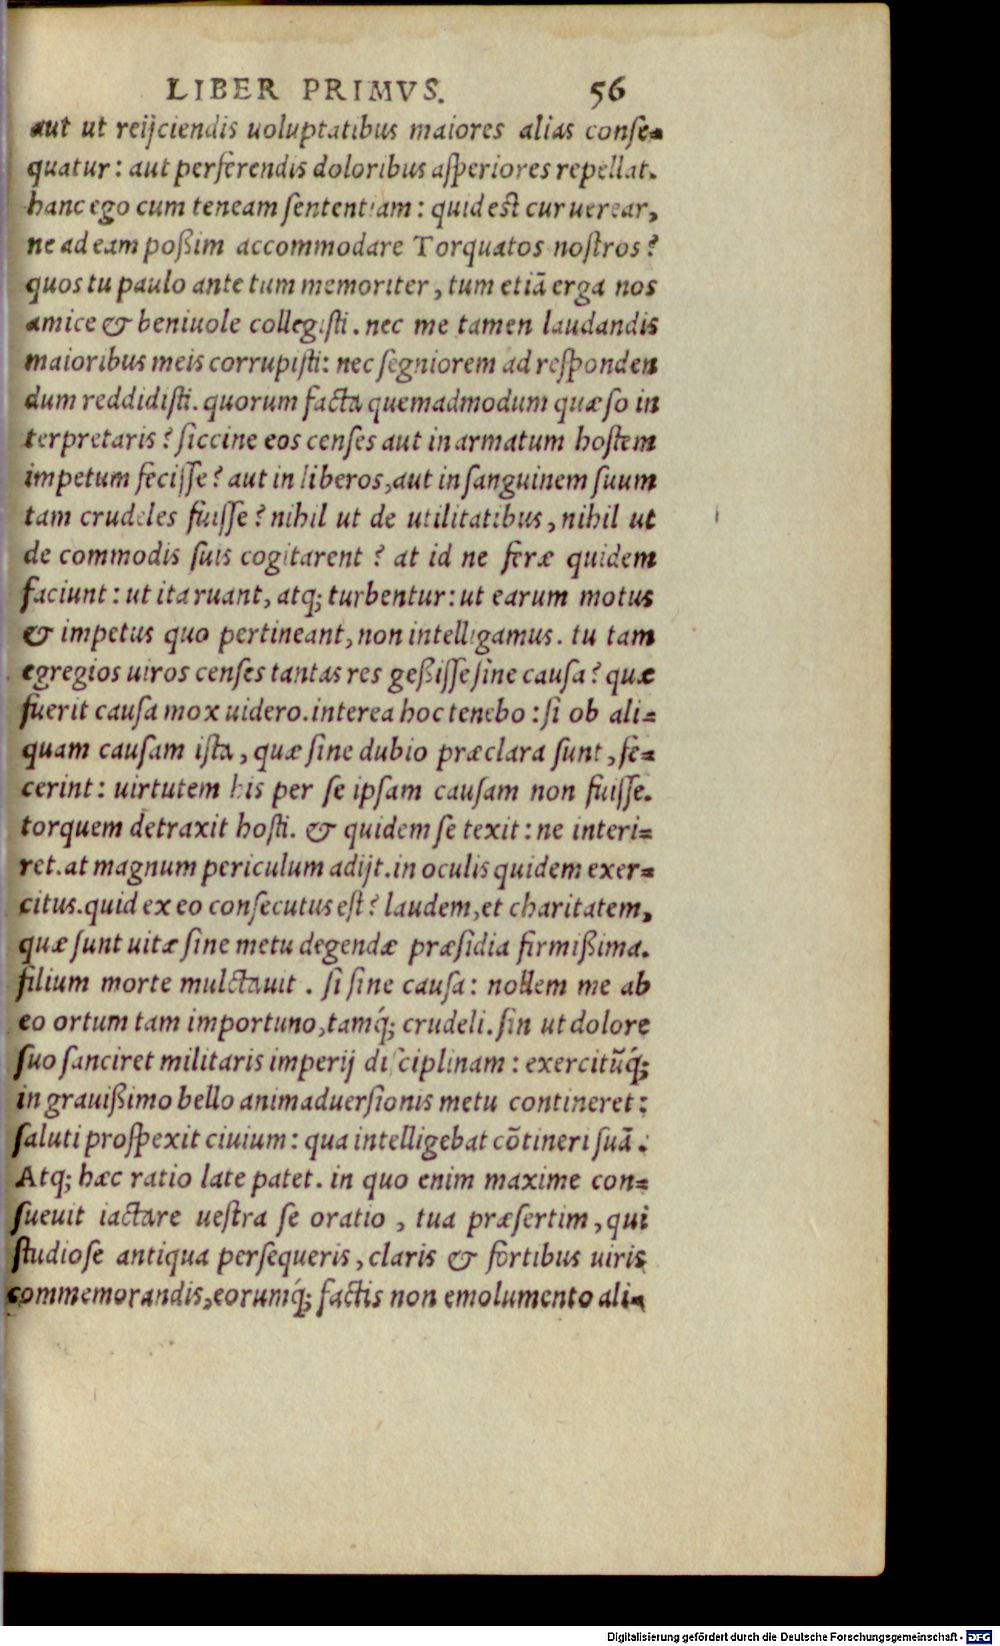 LIBER PRIMVS. 56
aut ut reijciendis uoluptatibus maiores alias conse-
quatur: aut perferendis doloribus asperiores repellat.
hanc ego cum teneam sententiam: quid est cur uerear,
ne ad eam poßim accommodare Torquatos nostros?
quos tu paulo ante tum memoriter, tum etiã erga nos
amice & beniuole collegisti. nec me tamen laudandis
maioribus meis corrupisti: nec segniorem ad responden
dum reddidisti. quorum facta quemadmodum quæso in
terpretaris? siccine eos censes aut in armatum hostem
impetum fecisse? aut in liberos, aut in sanguinem suum
tam crudeles fuisse? nihil ut de utilitatibus, nihil ut
de commodis suis cogitarent? at id ne feræ quidem
faciunt: ut ita ruant, atq; turbentur: ut earum motus
& impetus quo pertineant, non intelligamus. tu tam
egregios uiros censes tantas res geßisse sine causa? quæ
fuerit causa mox uidero. interea hoc tenebo: si ob ali-
quam causam ista, quæ sine dubio præclara sunt, fe-
cerint: uirtutem his per se ipsam causam non fuisse.
torquem detraxit hosti. & quidem se texit: ne interi-
ret. at magnum periculum adijt. in oculis quidem exer-
citus. quid ex eo consecutus est? laudem, et charitatem,
quæ sunt uitæ sine metu degendæ præsidia firmißima.
filium morte mulctauit. si sine causa: nollem me ab
eo ortum tam importuno, tamq́; crudeli. sin ut dolore
suo sanciret militaris imperij disciplinam: exercitũq́;
in grauißimo bello animaduersionis metu contineret:
saluti prospexit ciuium: qua intelligebat cõtineri suã.
Atq; hæc ratio late patet. in quo enim maxime con-
sueuit iactare uestra se oratio, tua præsertim, qui
studiose antiqua persequeris, claris & fortibus uiris
commemorandis, eorumq́; factis non emolumento ali-
Digitalisierung gefördert durch die Deutsche Forschungsgemeinschaft - DFG